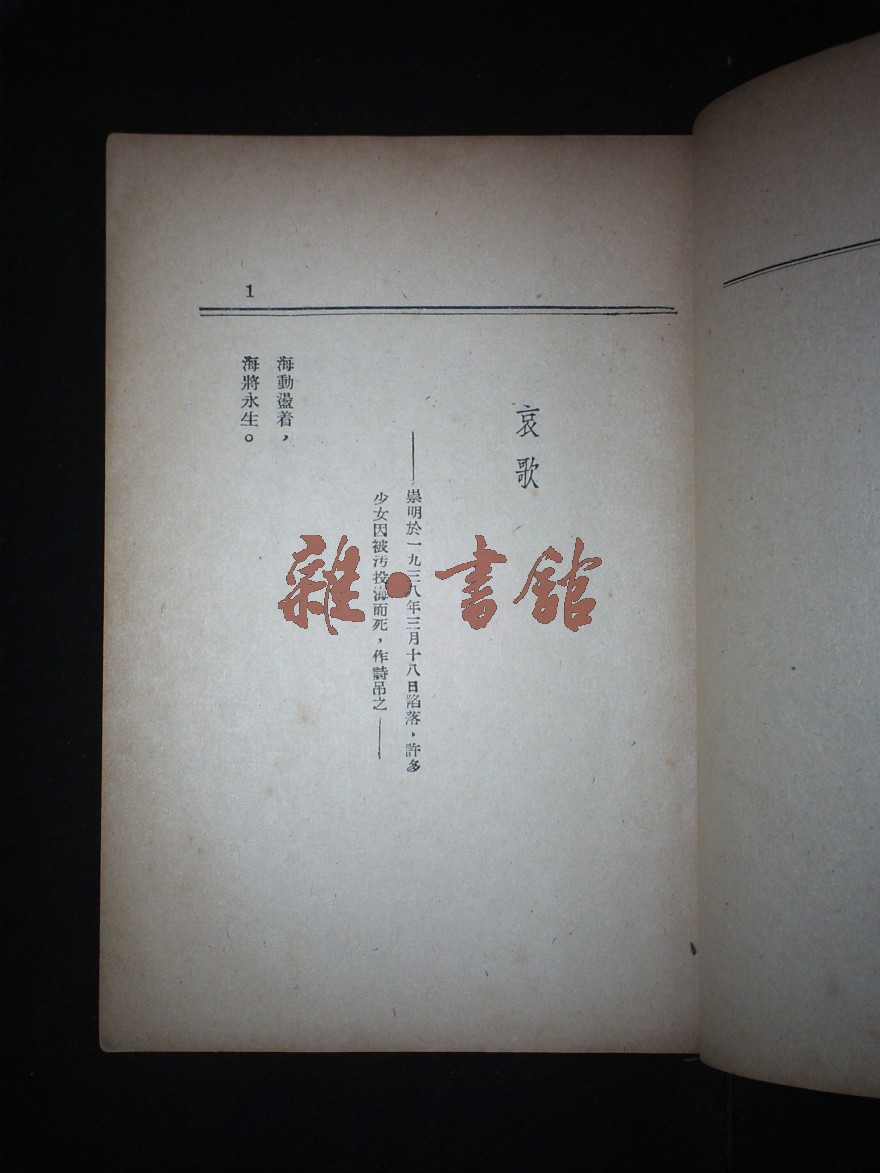 1
哀歌
——崇明於一九三八年三月十八日陷落，許多
少女因被汚投海而死，作詩吊之——
海動盪着，
海將永生。
雜·書館